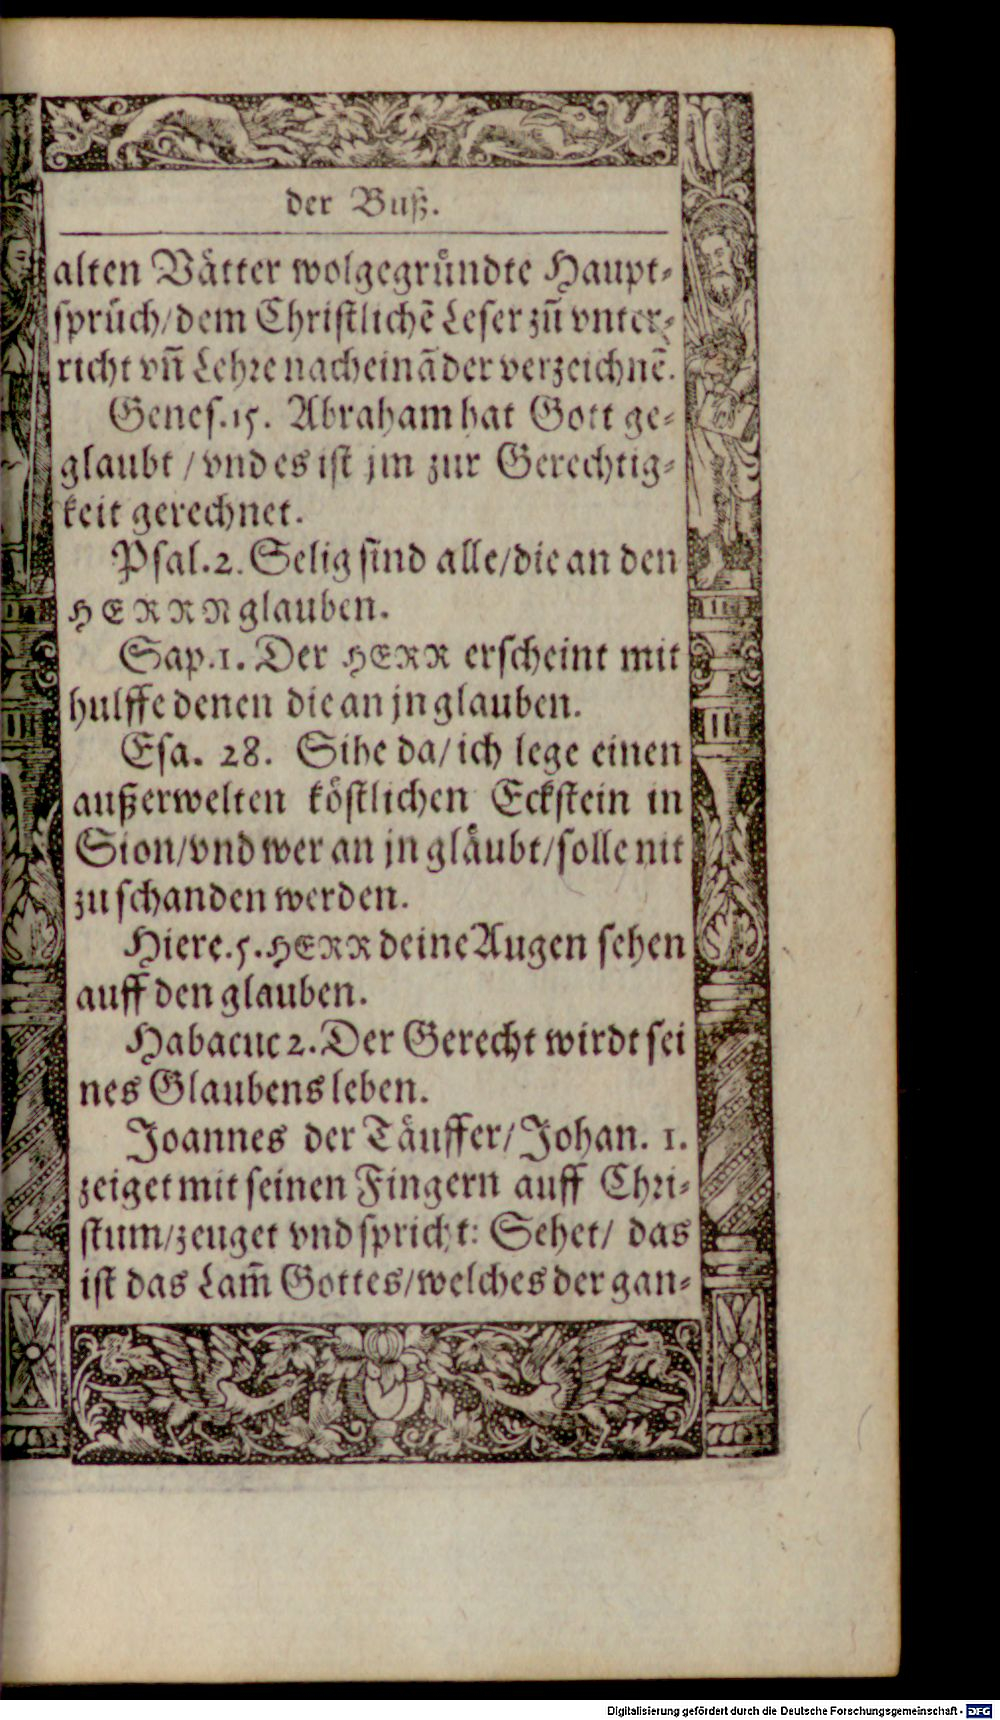 der Buß.
alten Vätter wolgegründte Haupt-
sprüch/dem Christlichẽ Leser zů vnter-
richt vñ Lehre nacheinãder verzeichnẽ.
Genes.15. Abraham hat Gott ge-
glaubt / vnd es ist jm zur Gerechtig-
keit gerechnet.
Psal.2. Selig sind alle/die an den
HERRN glauben.
Sap.1. Der HERR erscheint mit
hulffe denen die an jn glauben.
Esa. 28. Sihe da/ ich lege einen
außerwelten köstlichen Eckstein in
Sion/vnd wer an jn gläubt/solle nit
zu schanden werden.
Hiere.5.HERR deine Augen sehen
auff den glauben.
Habacuc 2. Der Gerecht wirdt sei
nes Glaubens leben.
Joannes der Täuffer/Johan. 1.
zeiget mit seinen Fingern auff Chri-
stum/zeuget vnd spricht: Sehet/ das
ist das Lam̃ Gottes/welches der gan-
Digitalisierung gefördert durch die Deutsche Forschungsgemeinschaft - DFG